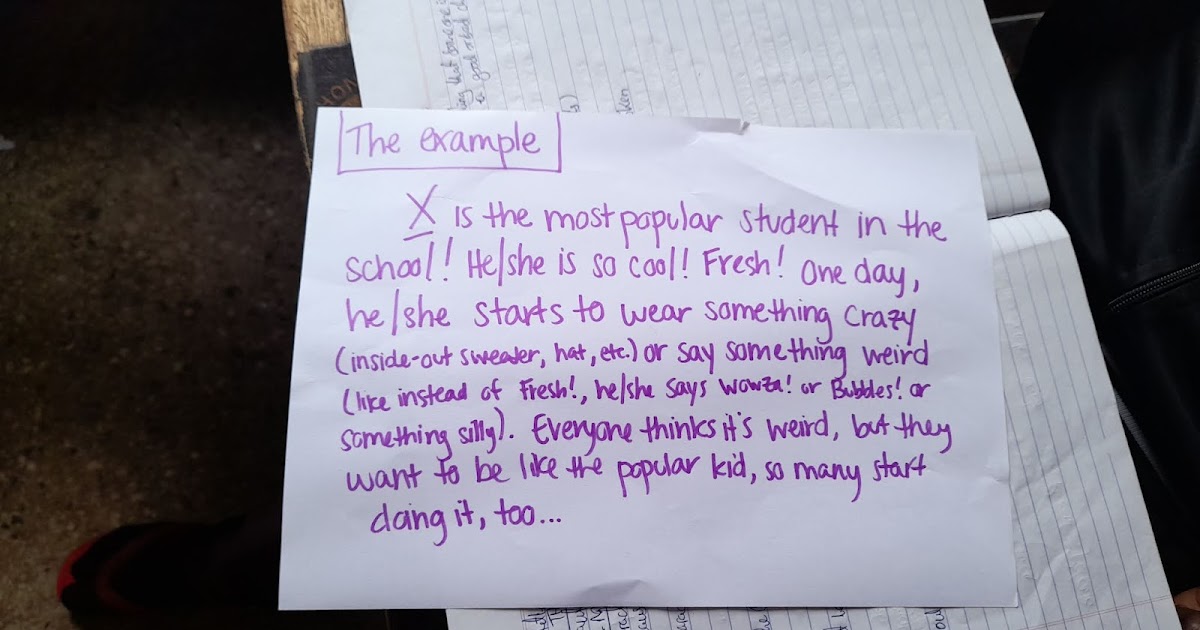 The example
X is the most popular student in the
school! He/she is so cool! Fresh! One day,
he/she starts to wear something crazy
(inside-out sweater, hat, etc.) or say something weird
(like instead of Fresh!, he/she says Wowza! or Bubbles! or
something silly). Everyone thinks it's weird, but they
want to be like the popular kid, so many start
doing it, too...